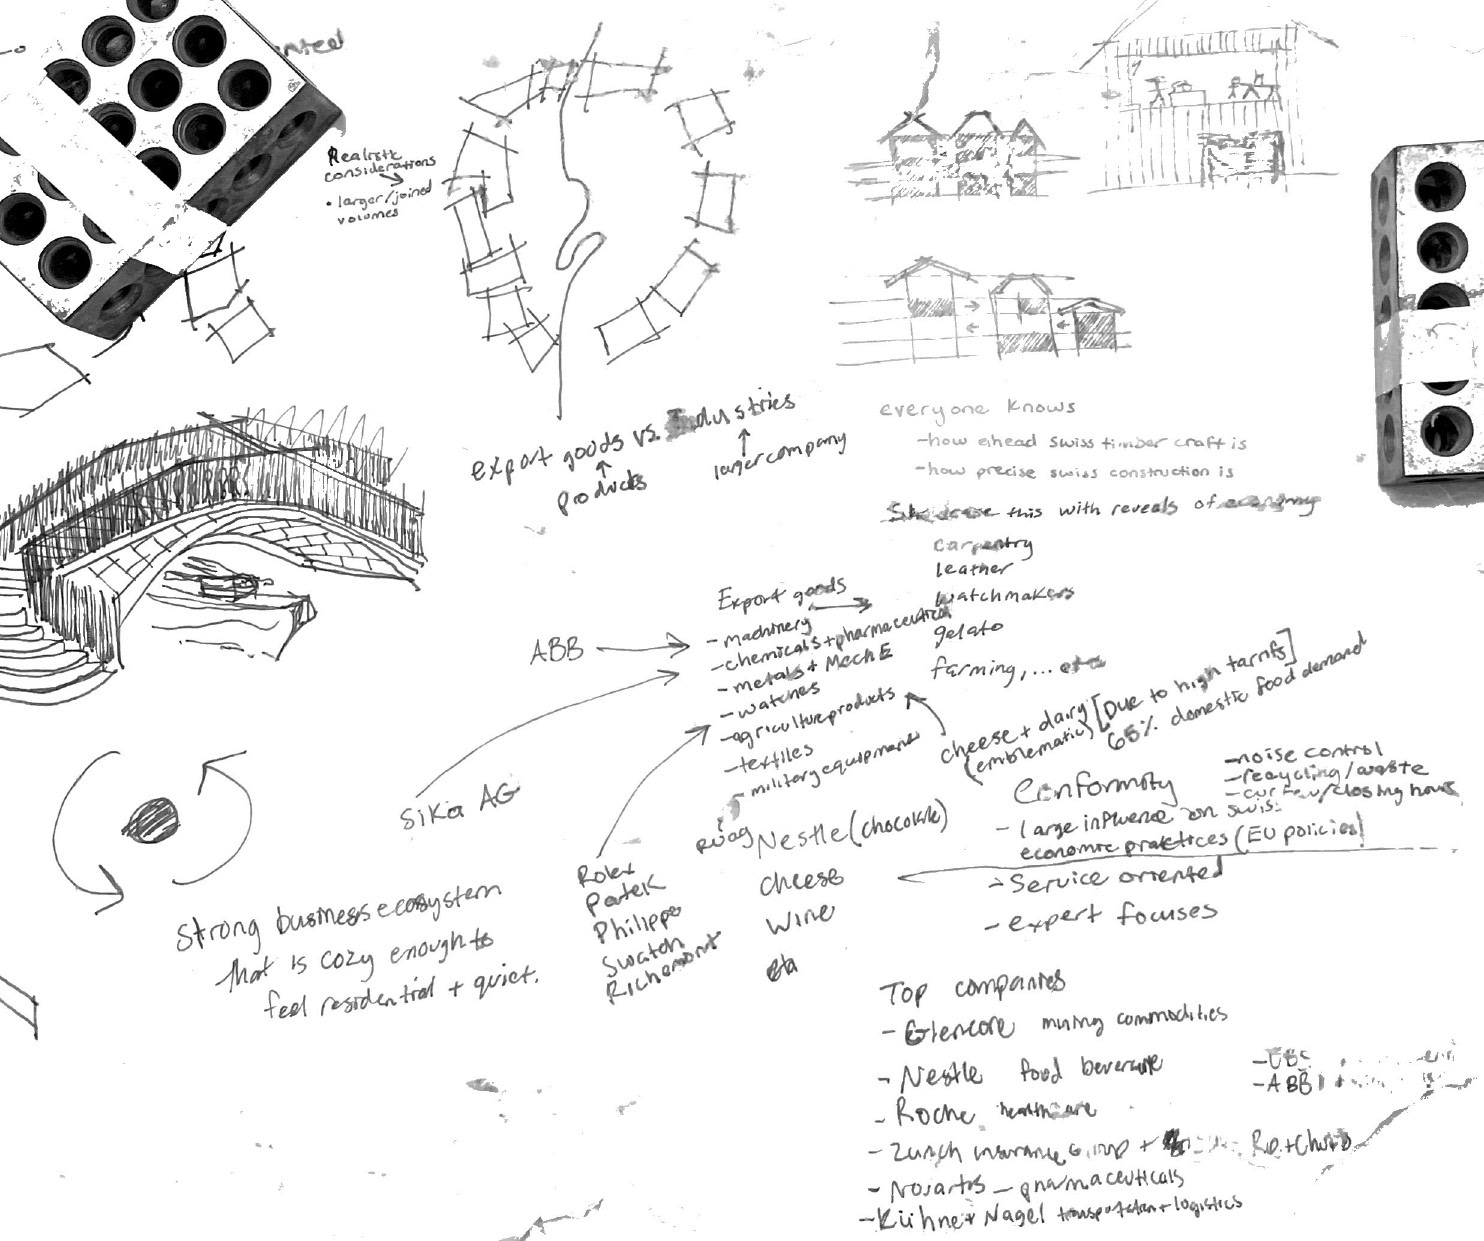 Realistic
considerations
• larger/joined
volumes
export goods vs. Industries
products
larger company
everyone knows
-how ahead swiss timber craft is
-how precise swiss construction is
this with reveals of economy
carpentry
leather
watchmakers
gelato
farming, ... etc
Export goods
- machinery
- chemicals + pharmaceutical
- metals + Mech E
- watches
- agriculture products
- textiles
- military equipment
ABB
Sika AG
cheese + dairy
(emblematic)
[Due to high tariffs]
65% domestic food demand
Conformity
- noise control
- recycling/waste
- curfew/closing hours
- large influence on swiss
economic practices (EU policies)
- Service oriented
- expert focuses
ruag
Nestle (chocolate)
cheese
wine
Rolex
Patek
Philippe
Swatch
Richemont
Strong business ecosystem
that is cozy enough to
feel residential + quiet.
Top companies
- Glencore mining commodities
- Nestle food beverage
- Roche healthcare
- Zurich insurance Group +
- Novartis - pharmaceuticals
- Kühne + Nagel transportation + logistics
- UBS
- ABB